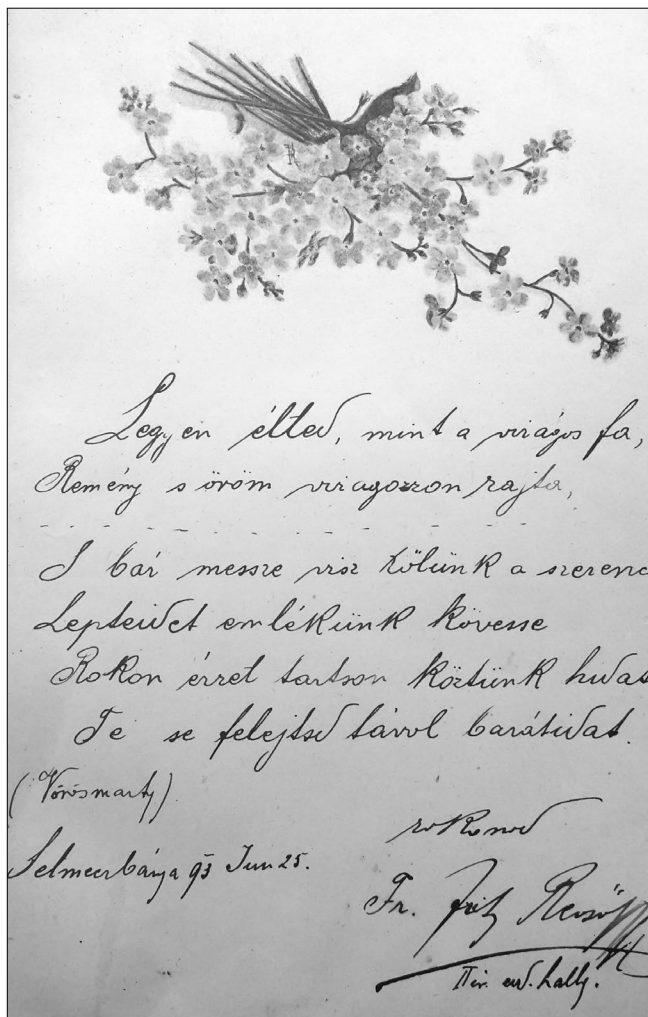 Legyen élted, mint a virágos fa,
Remény s öröm viragozzon rajta,
S bár messze visz tőlünk a szerenc
Lépteidet emlékünk kövesse
Rokon érzet tartson köztünk hidat
Te se felejtsd távol barátidat.
(Vörösmarty)
rokonod
Selmeczbánya 93 Jun 25.
Fr. Fritz
IIév. erd. hallg.